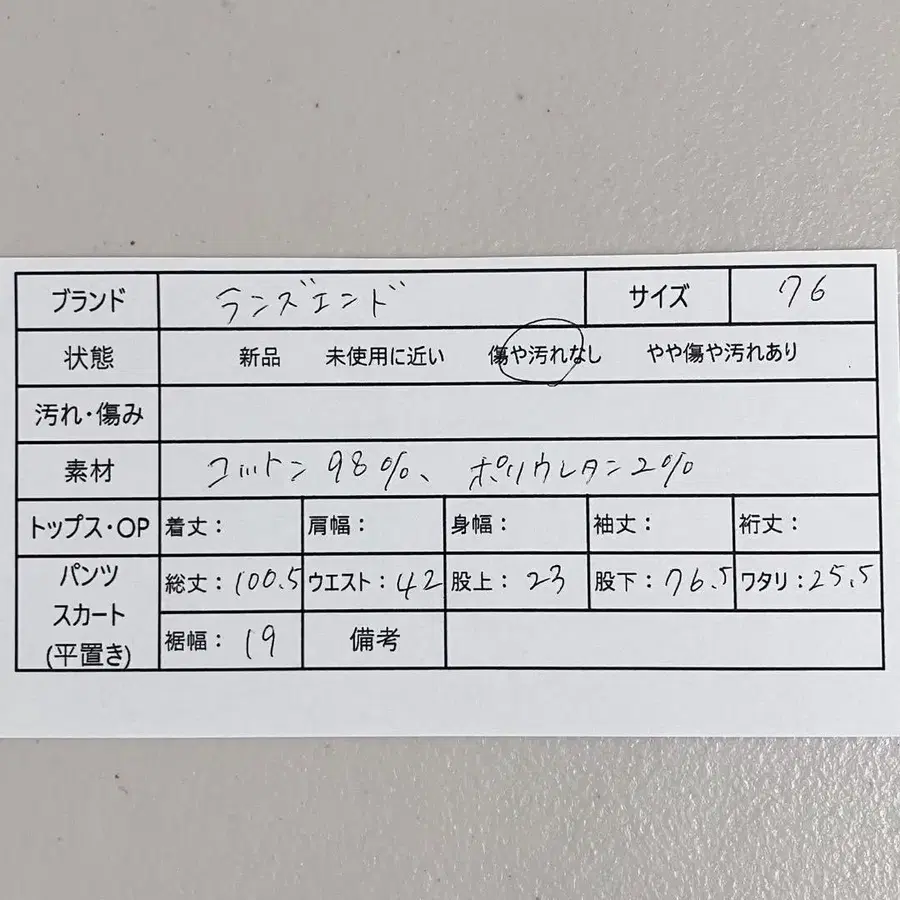 ブランド ランズエンド サイズ 76
状態 新品 未使用に近い 傷や汚れなし やや傷や汚れあり
汚れ・傷み
素材 コットン 98%、ポリウレタン2%
トップス・OP 着丈: 肩幅: 身幅: 袖丈: 裄丈:
パンツ
スカート
(平置き)
総丈:100.5 ウエスト:42 股上:23 股下:76.5 ワタリ:25.5
裾幅:19 備考